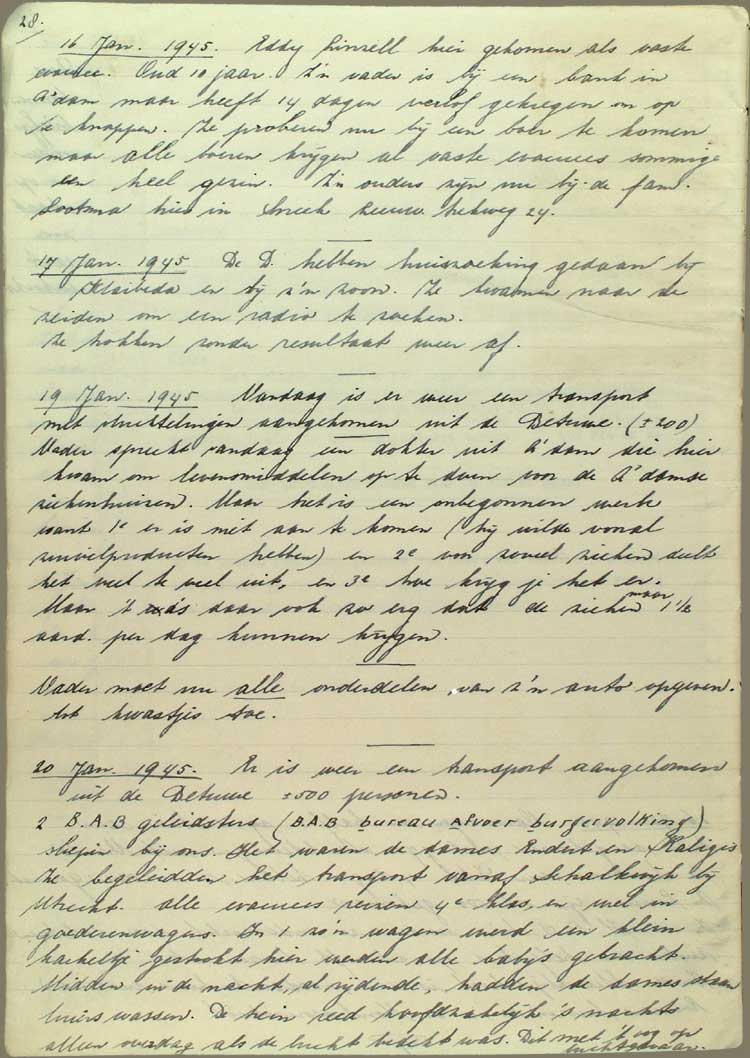 28.
16 Jan. 1945. Eddy Linzell hier gekomen als vaste
evacué. Oud 10 jaar. Z'n vader is bij een bank in
A'dam maar heeft 14 dagen verlof gekregen om op
te knappen. Ze proberen nu bij een boer te komen
maar alle boeren krijgen al vaste evacuees sommige
een heel gezin. Z'n ouders zijn nu bij de fam.
Lootsma hier in Sneek Leeuw. trekweg 24.
17 Jan. 1945 De D. hebben huiszoeking gedaan bij
en bij z'n zoon. Ze kwamen naar de
zeiden om een radio te zoeken.
Ze trokken zonder resultaat weer af.
19 Jan. 1945 Vandaag is er weer een transport
met vluchtelingen aangekomen uit de Betuwe. (±200)
Vader spreekt vandaag een dokter uit A'dam die hier
kwam om levensmiddelen op te doen voor de A'damse
ziekenhuizen. Maar het is een onbegonnen werk
want 1e er is niet aan te komen (hij wilde vooral
zuivelproducten hebben) en 2e voor zoveel zieken deelt
het veel te veel uit, en 3e hoe krijg je het er.
Maar 't is daar ook zo erg dat de zieken maar 1½
aard. per dag kunnen krijgen.
Vader moet nu alle onderdelen van z'n auto opgeven.
tot kwastjes toe.
20 Jan. 1945. Er is weer een transport aangekomen
uit de Betuwe ±500 personen.
2 B.A.B geleidsters (B.A.B bureau afvoer burgervolking)
sliepen bij ons. Het waren de dames Endert en
Ze begeleidden het transport vanaf Schalkwijk bij
Utrecht. alle evacuees reizen 4e klas, en wel in
goederenwagens. In 1 zo'n wagen werd een klein
kacheltje gestookt hier werden alle baby's gebracht.
Midden in de nacht, al rijdende, hadden de dames staan
luiers wassen. De trein reed hoofdzakelijk 's nachts
alleen overdag als de lucht bedekt was. Dit met 't oog op
luchtgevaar.